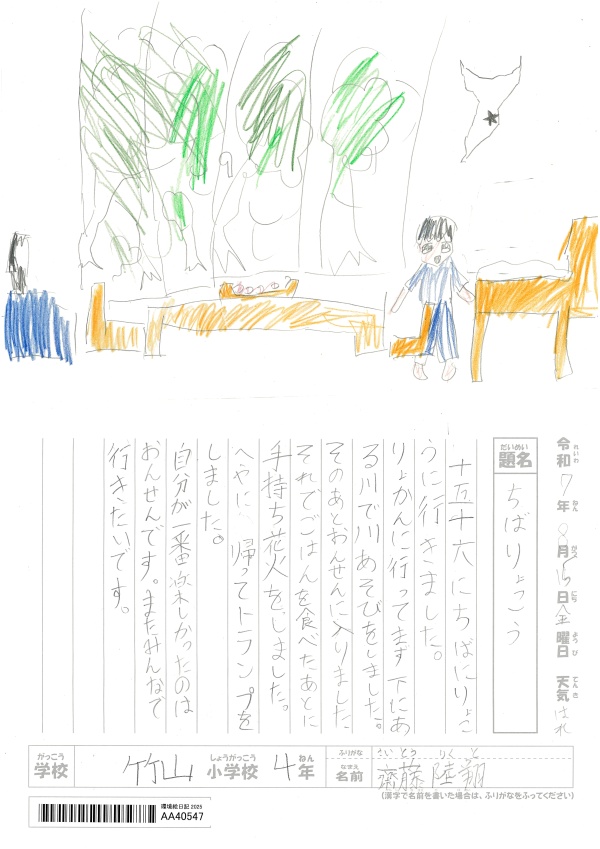 令和7年8月15日金曜日 天気はれ
れいわ ねん がつ にち ようび てんき
だいめい
題名
ちばりょこう
十五十六にちばにりょこ
うに行きました。
りょかんに行ってまず下にあ
る川で川あそびをしました。
そのあとおんせんに入りました。
それでごはんを食べたあとに
手持ち花火をしました。
へやに帰ってトランプを
しました。
自分が一番楽しかったのは
おんせんです。またみんなで
行きたいです。
がっこう しょうがっこう ねん
学校 竹山 小学校 4年
ふりがな さいとう りくと
なまえ
名前 齋藤 陸翔
(漢字で名前を書いた場合は、ふりがなをふってください)
環境絵日記 2025
AA40547